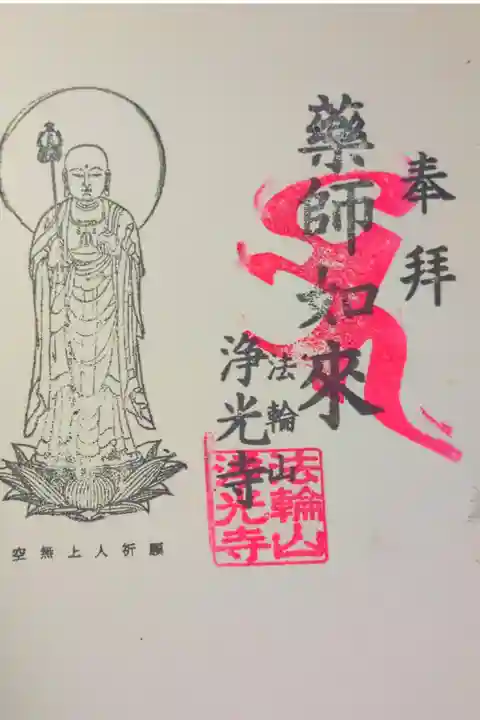 奉拜
藥師如來
法輪山
浄光寺
法輪山
浄光寺
願祈人上無空